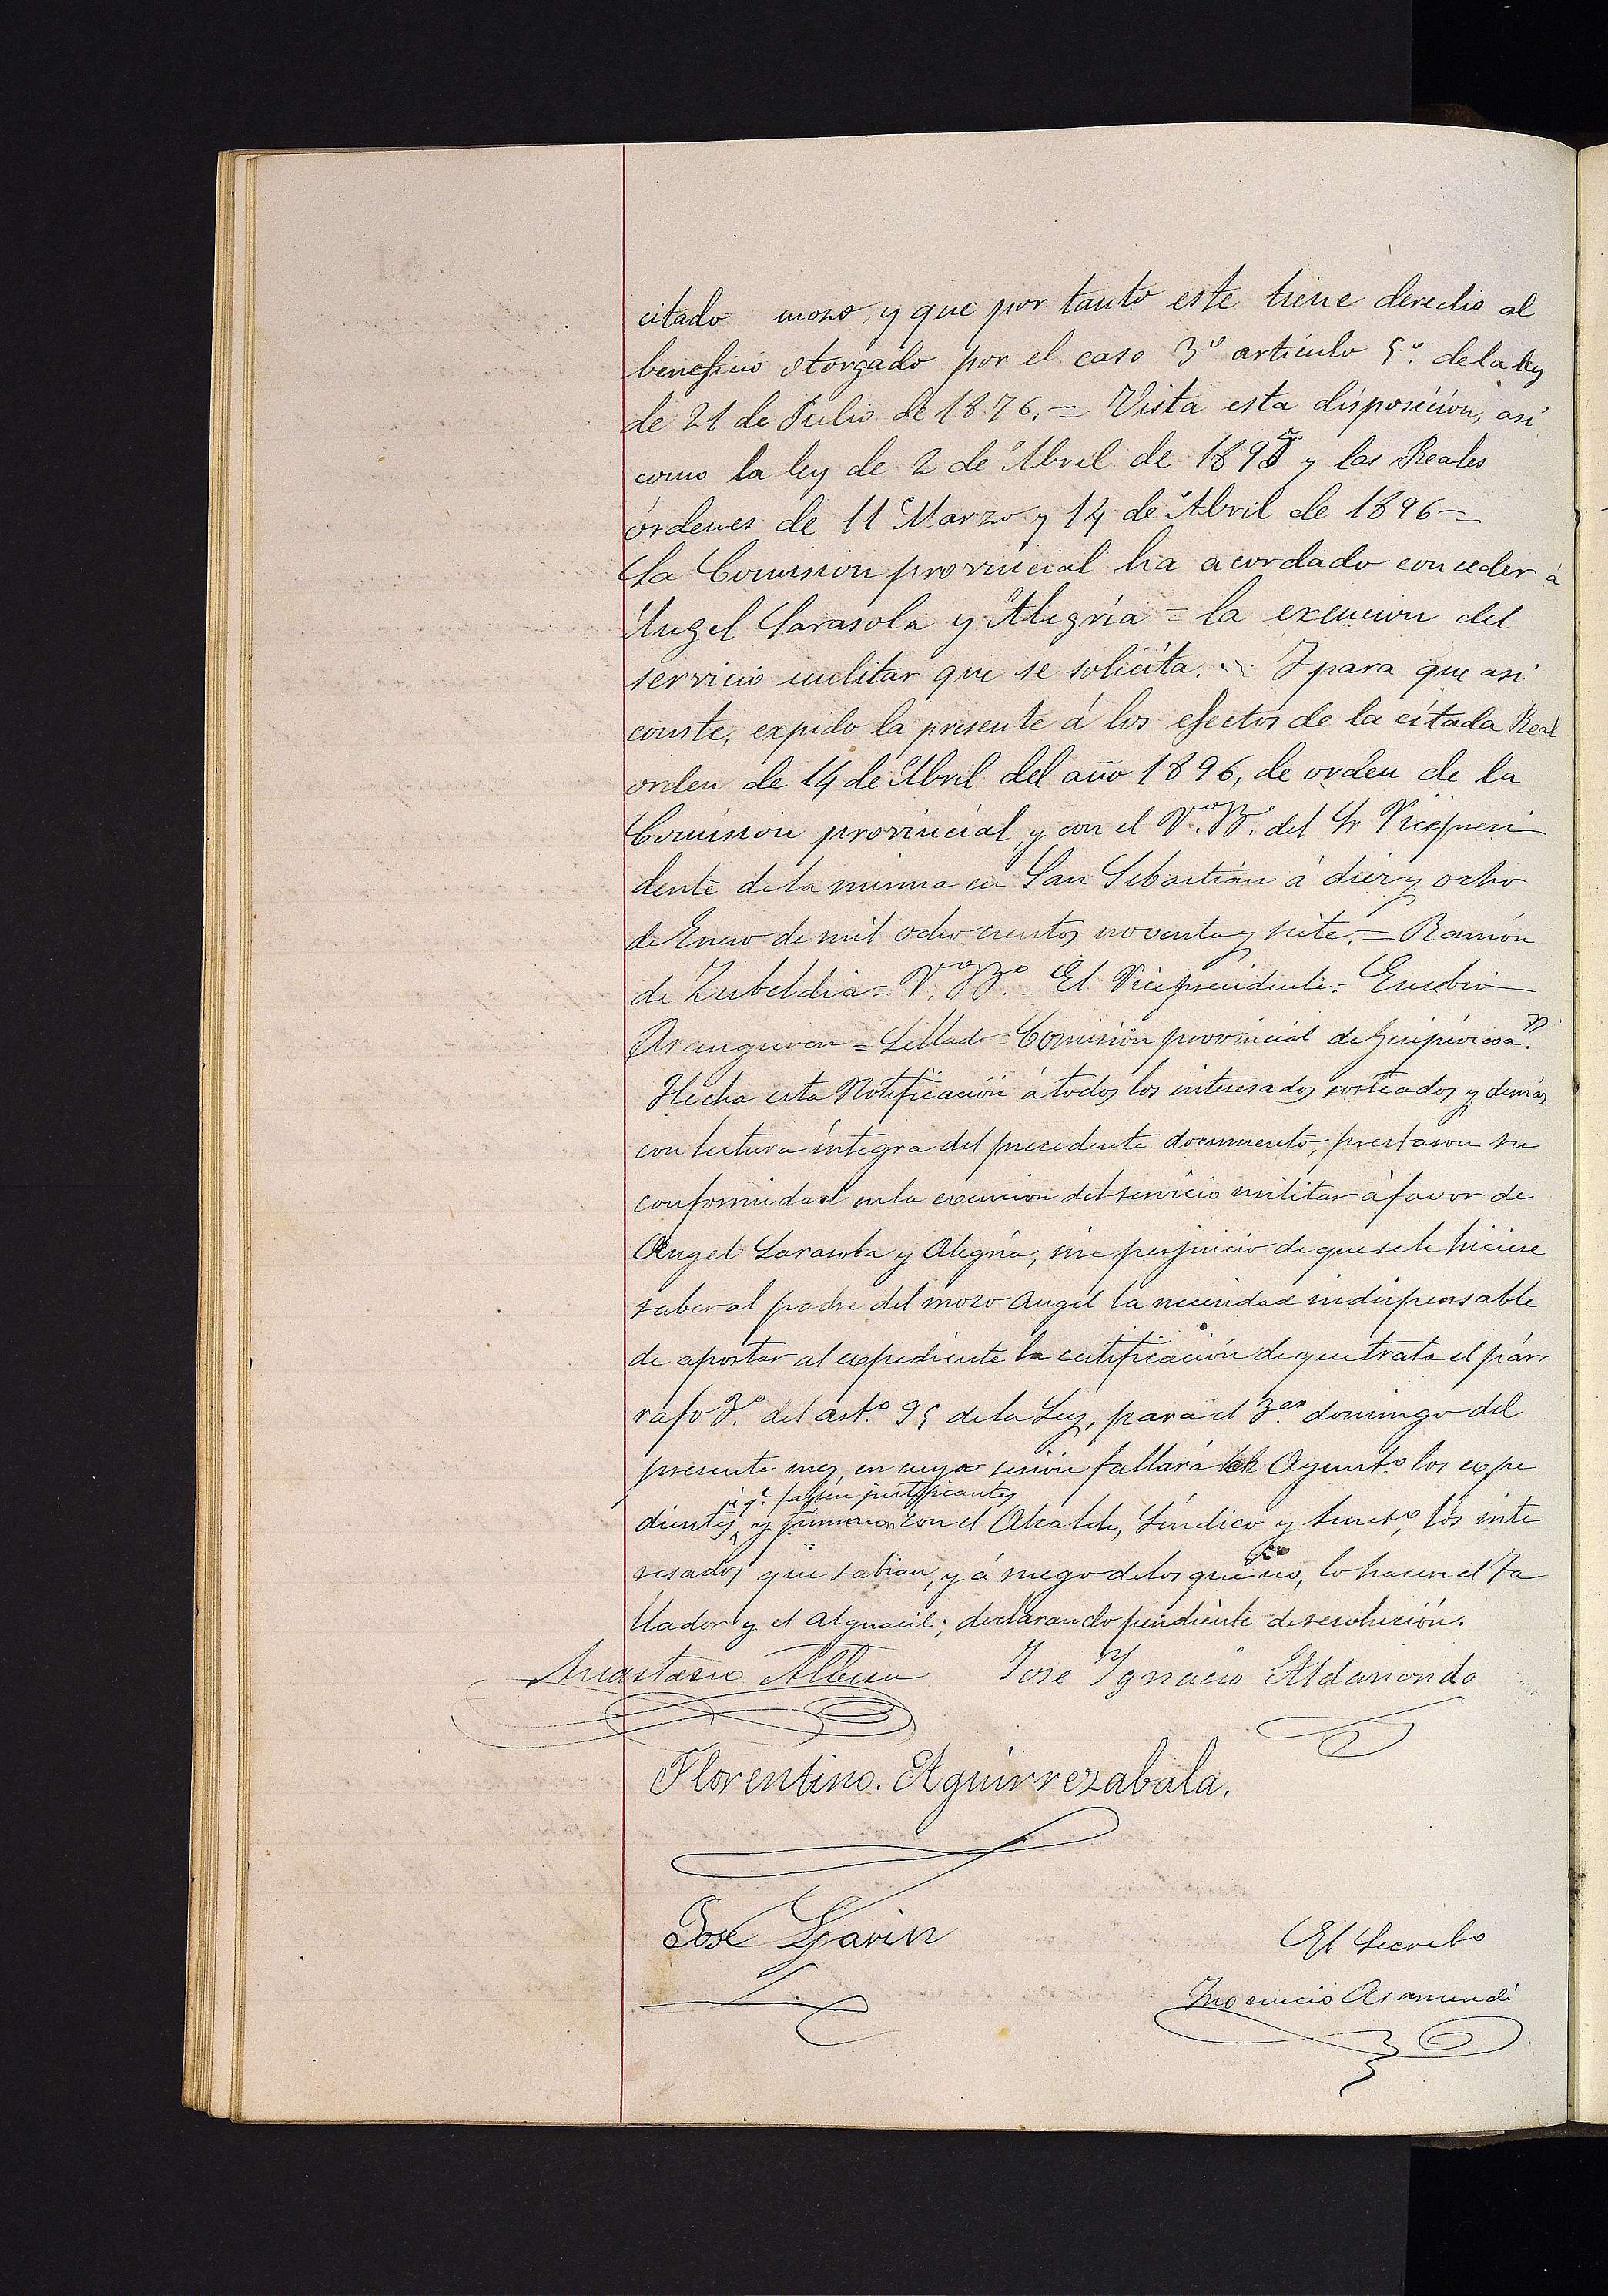 citado mozo, y que por tanto este tiene derecho al
beneficio otorgado por el caso 3º artículo 5º. de la ley
de 21 de Julio de 1876. = Vista esta disposición, así
como la ley de 2 de Abril de 1895 y las Reales
órdenes de 11 Marzo y 14 de Abril de 1896 =
La Comisión provincial ha acordado conceder á
Angel Sarasola y Alegría = la exención del
servicio militar que se solicita. = Y para que así
conste, expido la presente á los efectos de la citada Real
orden de 14 de Abril del año 1896, de orden de la
Comisión provincial, y con el Vº. Bº. del Sr Vicepresi
dente de la misma en San Sebastián á diez y ocho
de Enero de mil ochocientos noventa y siete. = Ramón
de Zubeldia = Vº. Bº. = El Vicepresidente = Eusebio
Aranguren = Sellado = Comisión provincial de Guipúzcoa."
Hecha esta Notificación á todos los interesados sorteados y demás
con lectura íntegra del precedente documento, prestaron su
conformidad en la exencion del servicio militar á favor de
Angel Sarasola y Alegría, sin perjuicio de que se le hiciese
saber al padre del mozo Angel la necesidad indispensable
de aportar al expediente la certificación de que trata el pár
rafo 3.º del art.º 95 de la Ley, para el 3.er domingo del
presente mes, en cuya sesión fallará el Ayunt.º los expe
justificantes
dientes, y firmaron con el Alcalde, Síndico y Secret.º, los inte
resados que sabian, y á ruego de los que no, lo hacen el Ta
llador y el alguacil; declarando pendiente de resolución.
Anastasio Albisu Jose Ignacio Aldanondo
Florentino. Aguirrezabala.
José Gavin
El Secret.º
Inocencio Aramendi